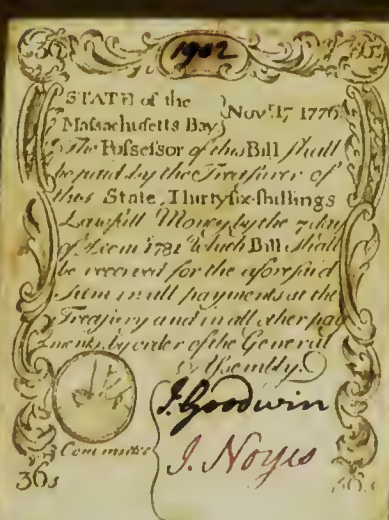 36s 1902 36s
STATE of the
Massachusetts Bay } Nov.r 17 1776
The Possessor of this Bill shall
be paid by the Treasurer of
this State, Thirty six shillings
Lawfull Money by the 7 day
of Decm.r 1781 which Bill shall
be received for the aforesaid
sum in all payments at the
Treasury and in all other pay
ments by order of the General
Assembly.
J. Goodwin
Committee
J. Noyes
36s 36s